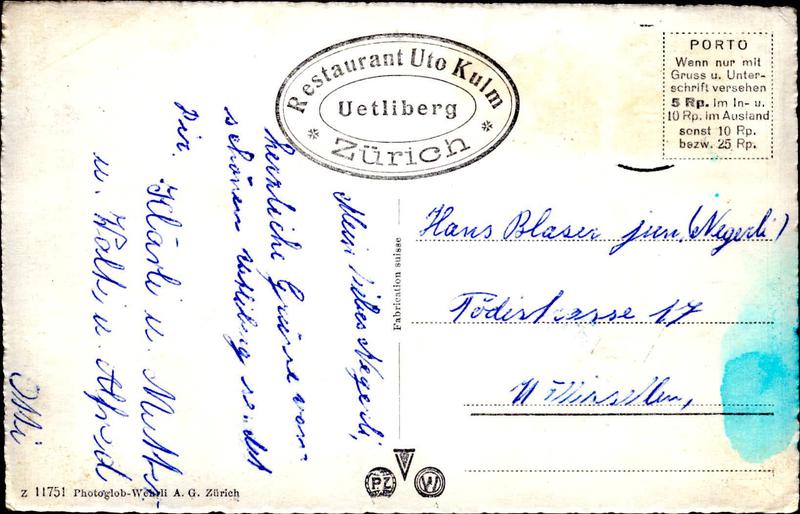 Restaurant Uto Kulm
Uetliberg
* Zürich *
PORTO
Wenn nur mit
Gruss u. Unter-
schrift versehen
5 Rp. im In- u.
10 Rp. im Ausland
sonst 10 Rp.
bezw. 25 Rp.
Mein liebes Negerli,
herzliche Grüsse vom
schönen sendet
Dir. Klärli u. Mutti
u. Walt. u. Alfred
Otti
Fabrication suisse
Hans Blaser jun. (Negerli)
Tödistrasse 17
Wallisellen,
PZ W
Z 11751 Photoglob-Wehrli A. G. Zürich